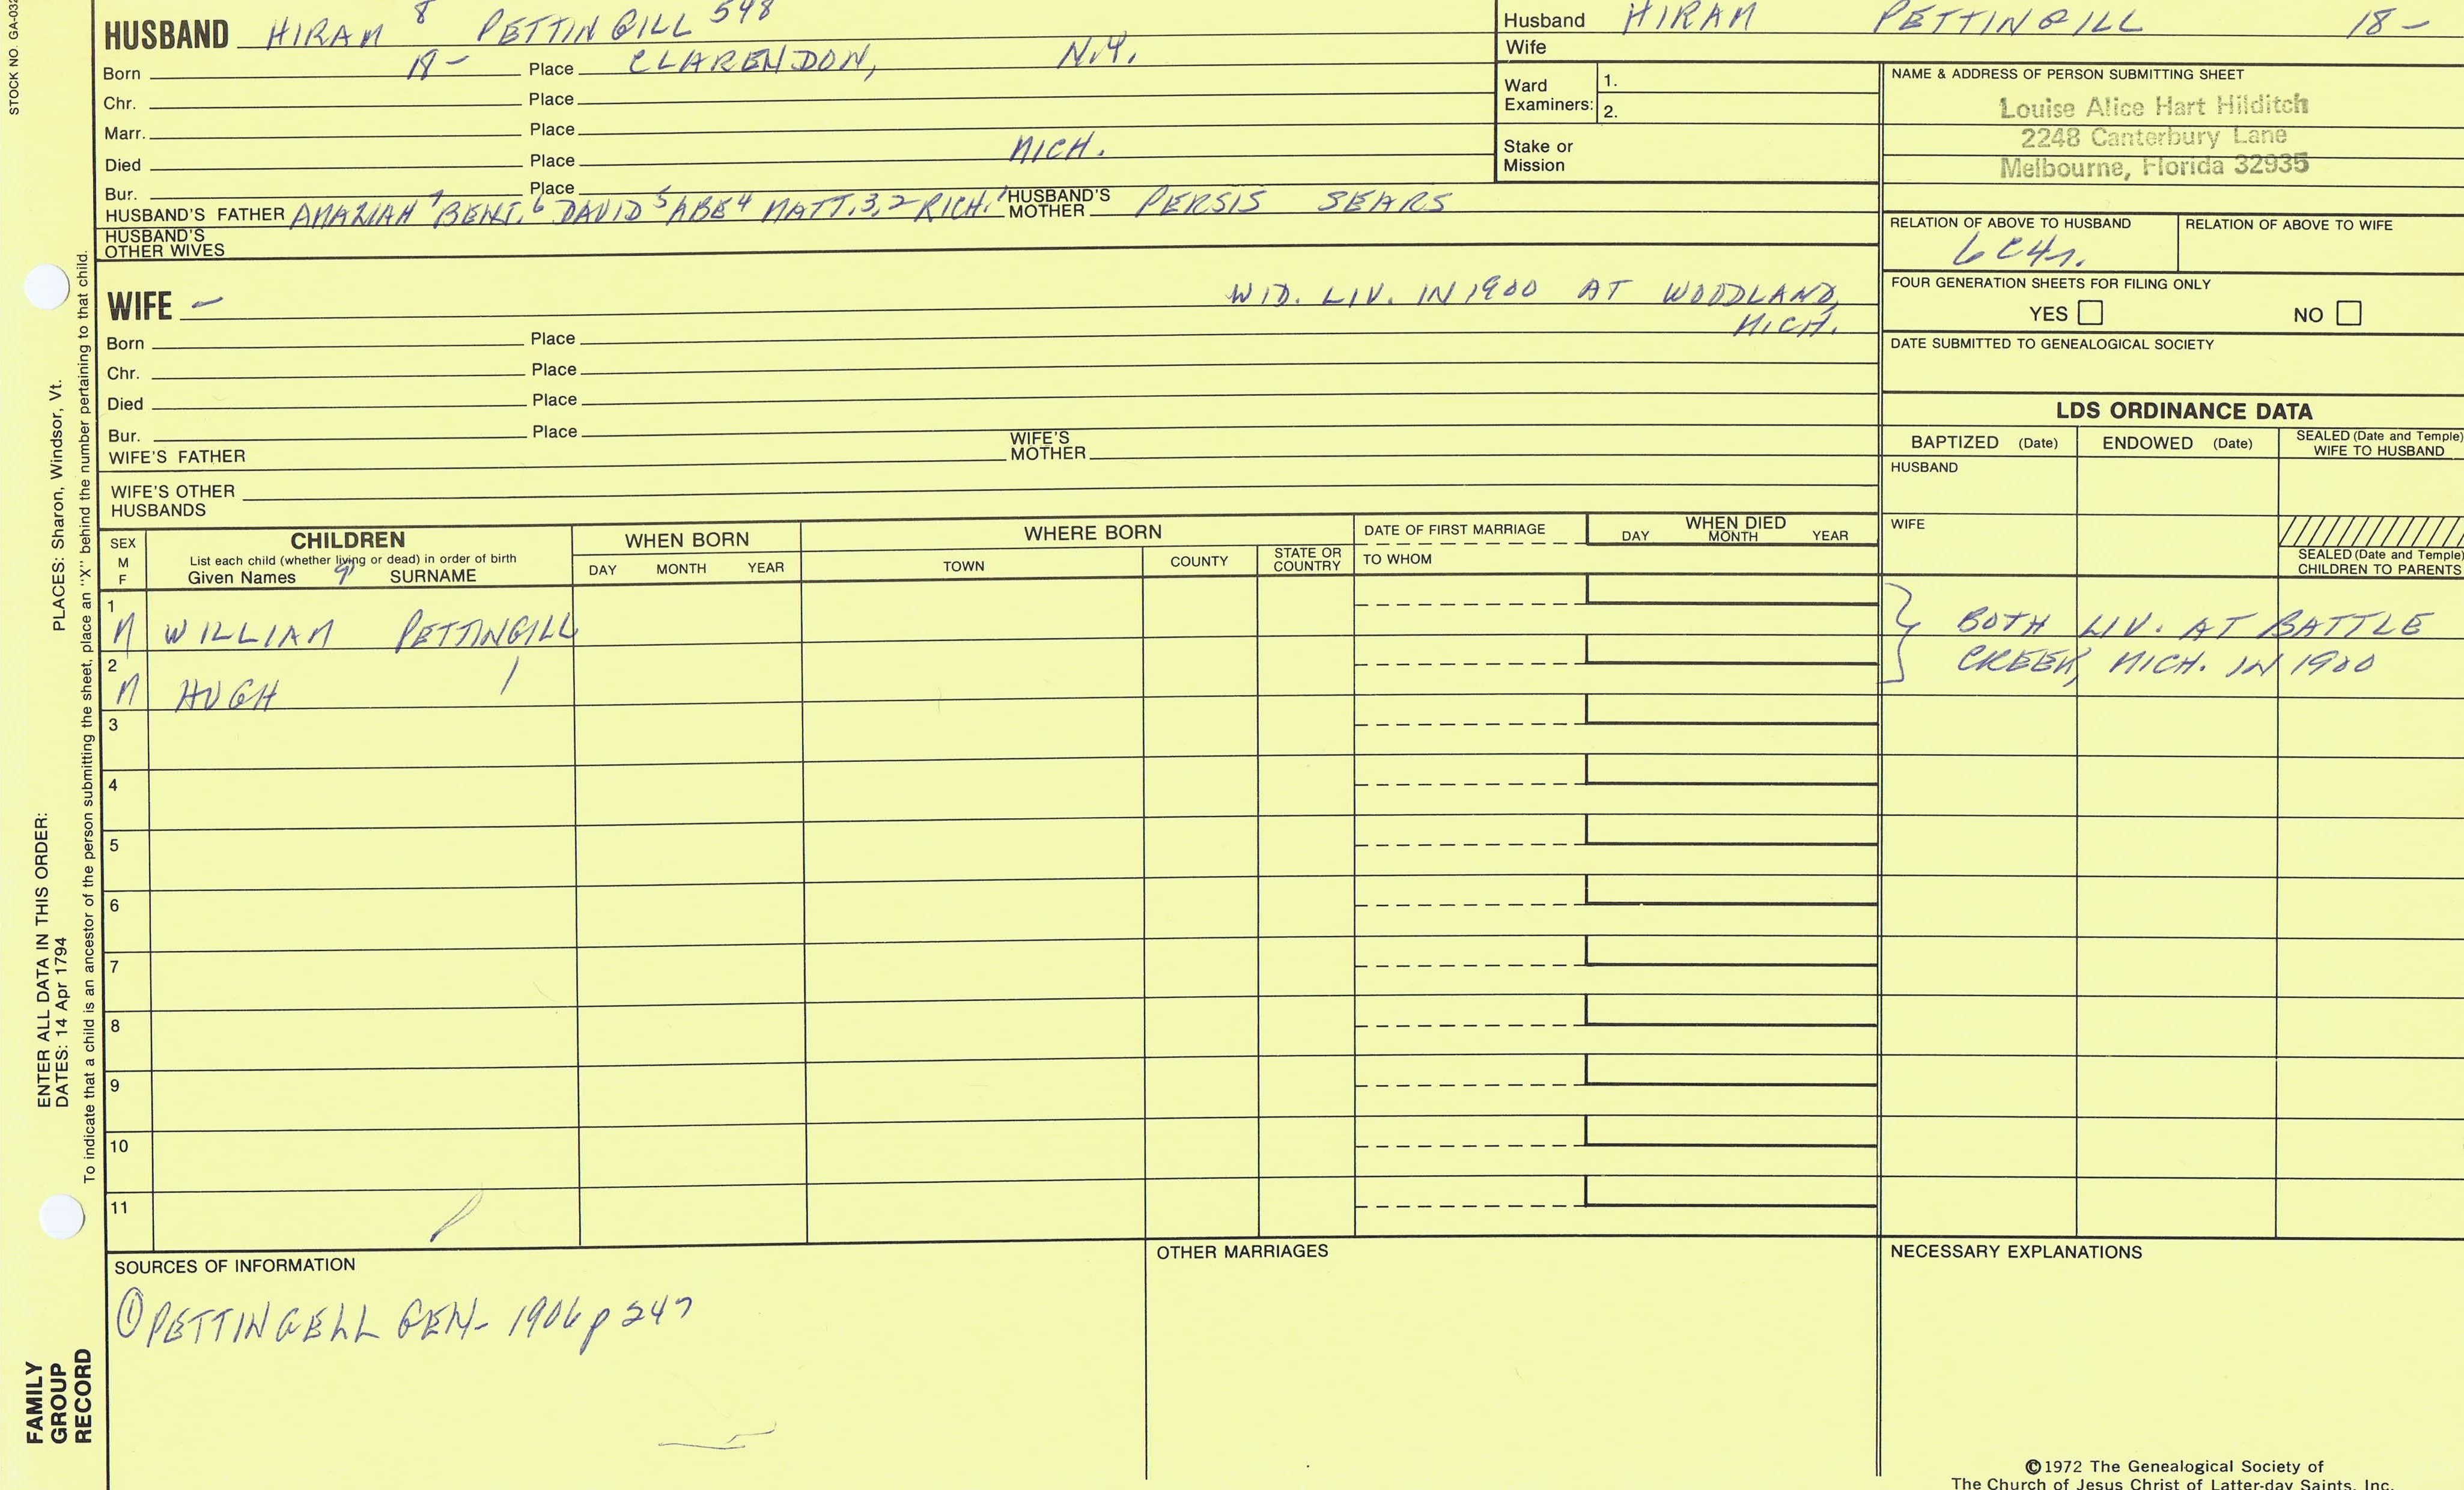 STOCK NO. GA-032
HUSBAND HIRAM 8 PETTINGILL 548
Born 18- Place CLARENDON, N.Y.
Chr. Place
Marr. Place
Died Place MICH.
Bur. Place
HUSBAND'S FATHER AMAZIAH 7 BENJ. 6 DAVID 5 ABE 4 MATT. 3,2 RICH. 1 HUSBAND'S MOTHER PERSIS SEARS
HUSBAND'S OTHER WIVES
Husband HIRAM PETTINGILL 18-
Wife
Ward Examiners: 1.
2.
Stake or Mission
NAME & ADDRESS OF PERSON SUBMITTING SHEET
Louise Alice Hart Hilditch
2248 Canterbury Lane
Melbourne, Florida 32935
RELATION OF ABOVE TO HUSBAND RELATION OF ABOVE TO WIFE
6C4r.
FOUR GENERATION SHEETS FOR FILING ONLY
YES NO
DATE SUBMITTED TO GENEALOGICAL SOCIETY
WIFE - WID. LIV. IN 1900 AT WOODLAND,
MICH.
Born Place
Chr. Place
Died Place
Bur. Place
WIFE'S FATHER WIFE'S MOTHER
WIFE'S OTHER HUSBANDS
LDS ORDINANCE DATA
BAPTIZED (Date) ENDOWED (Date) SEALED (Date and Temple) WIFE TO HUSBAND
HUSBAND
WIFE
SEALED (Date and Temple) CHILDREN TO PARENTS
SEX M F
CHILDREN
List each child (whether living or dead) in order of birth
Given Names 9 SURNAME
WHEN BORN
DAY MONTH YEAR
WHERE BORN
TOWN COUNTY STATE OR COUNTRY
DATE OF FIRST MARRIAGE
TO WHOM
WHEN DIED
DAY MONTH YEAR
1 M WILLIAM PETTINGILL
2 M HUGH
BOTH LIV. AT BATTLE
CREEK, MICH. IN 1900
3
4
5
6
7
8
9
10
11
SOURCES OF INFORMATION
① PETTINGELL GEN- 1906 p 247
OTHER MARRIAGES
NECESSARY EXPLANATIONS
©1972 The Genealogical Society of
The Church of Jesus Christ of Latter-day Saints, Inc.
ENTER ALL DATA IN THIS ORDER:
DATES: 14 Apr 1794 PLACES: Sharon, Windsor, Vt.
To indicate that a child is an ancestor of the person submitting the sheet, place an "X" behind the number pertaining to that child.
FAMILY
GROUP
RECORD